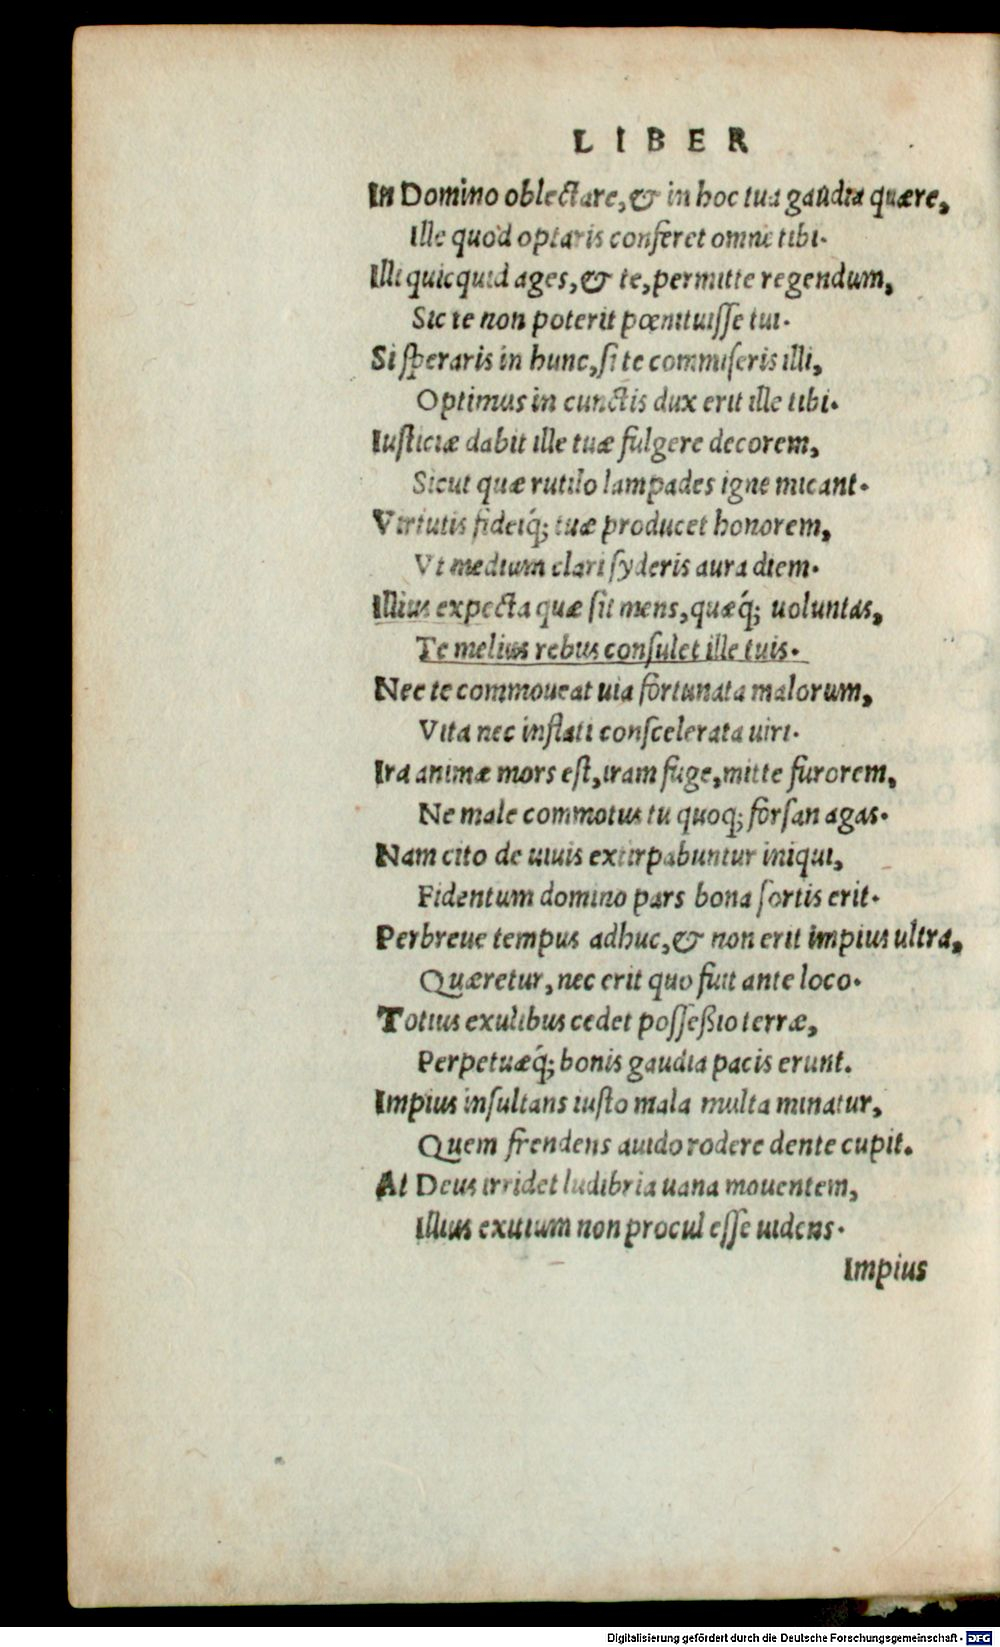 LIBER
In Domino oblectare, & in hoc tua gaudia quære,
Ille quod optaris conferet omne tibi.
Illi quicquid ages, & te, permitte regendum,
Sic te non poterit pœnituisse tui.
Si speraris in hunc, si te commiseris illi,
Optimus in cunctis dux erit ille tibi.
Iusticiæ dabit ille tuæ fulgere decorem,
Sicut quæ rutilo lampades igne micant.
Virtutis fideiq́; tuæ producet honorem,
Vt medium clari syderis aura diem.
Illius expecta quæ sit mens, quæq́; uoluntas,
Te melius rebus consulet ille tuis.
Nec te commoueat uia fortunata malorum,
Vita nec inflati conscelerata uiri.
Ira animæ mors est, iram fuge, mitte furorem,
Ne male commotus tu quoq; forsan agas.
Nam cito de uiuis extirpabuntur iniqui,
Fidentum domino pars bona sortis erit.
Perbreue tempus adhuc, & non erit impius ultra,
Quæretur, nec erit quo fuit ante loco.
Totius exulibus cedet posseßio terræ,
Perpetuæq́; bonis gaudia pacis erunt.
Impius insultans iusto mala multa minatur,
Quem frendens auido rodere dente cupit.
At Deus irridet ludibria uana mouentem,
Illius exitium non procul esse uidens.
Impius
Digitalisierung gefördert durch die Deutsche Forschungsgemeinschaft - DFG